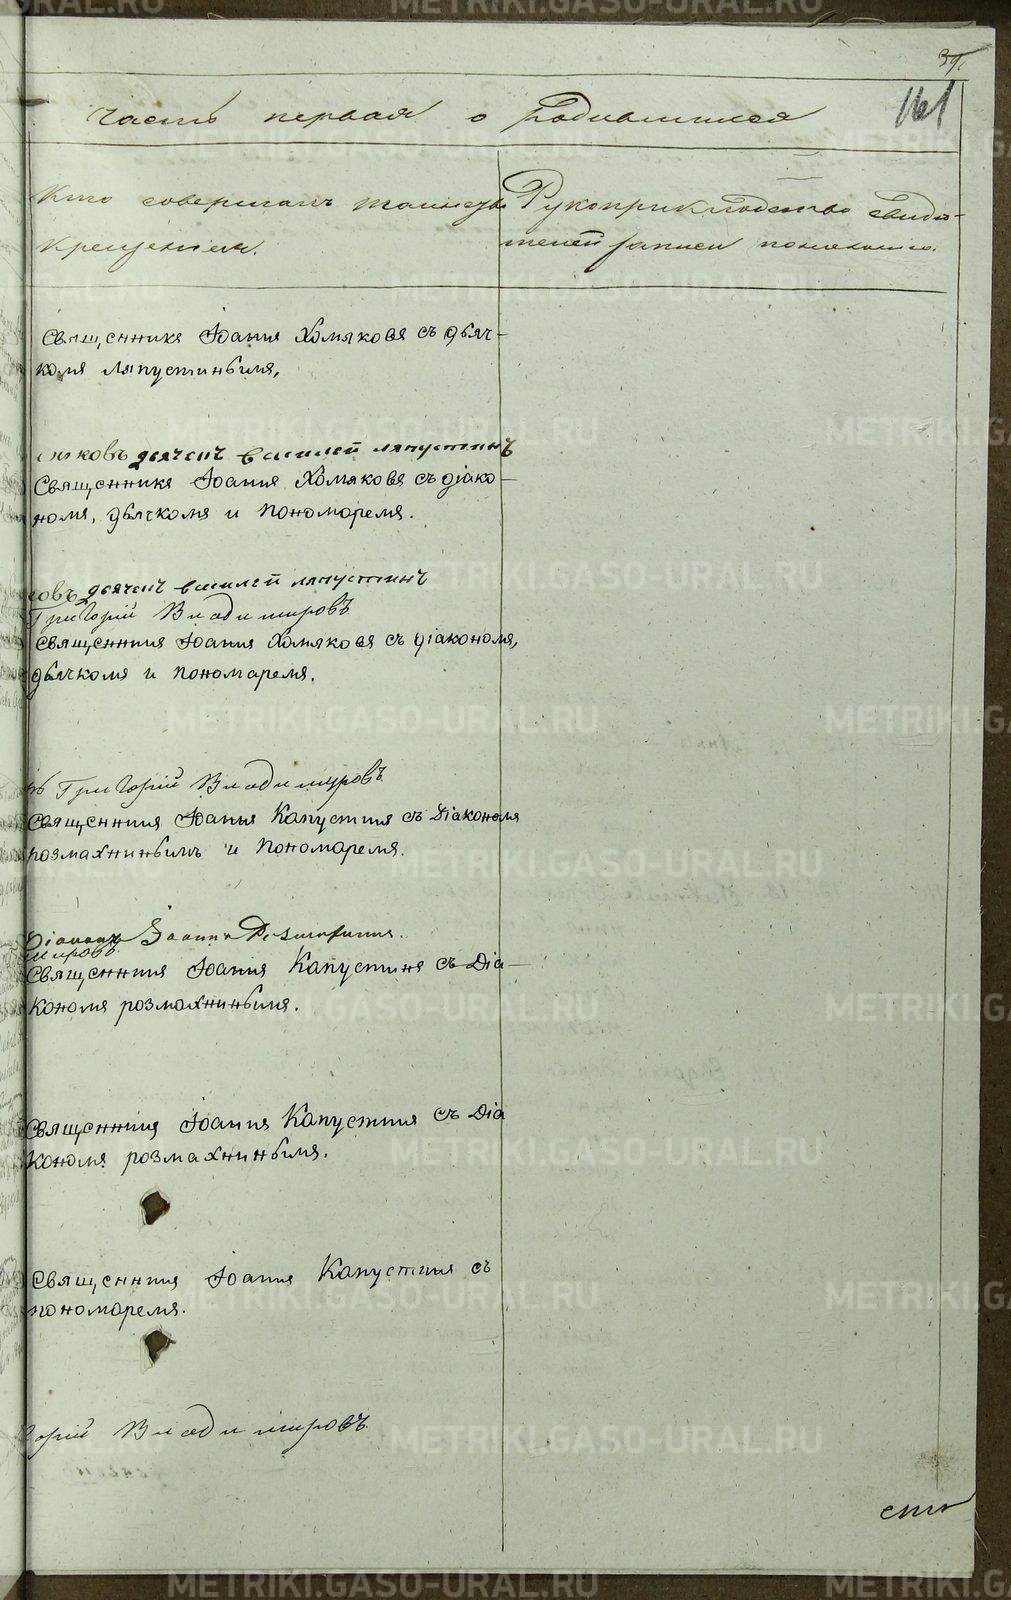 161
Часть первая о родившихся
Кто совершалъ таинство
крещенія.
Рукоприкладство свидѣ-
телей записи по желанію.
Священникъ Іоаннъ Хомяковъ съ дьяч-
комъ Ляпустинымъ,
дьячекъ Василей Ляпустинъ
Священникъ Іоаннъ Хомяковъ съ діако-
номъ, дьячкомъ и пономаремъ.
дьячекъ Василей Ляпустинъ
Григорій Владимировъ
Священникъ Іоаннъ Хомяковъ съ діакономъ,
дьячкомъ и пономаремъ.
Григорій Владимировъ
Священникъ Іоаннъ Капустинъ съ Діакономъ
розмахнинымъ и пономаремъ.
Діаконъ Іоаннъ
мировъ
Священникъ Іоаннъ Капустинъ съ Діа-
кономъ розмахнинымъ.
Священникъ Іоаннъ Капустинъ съ Діа
кономъ розмахнинымъ.
Священникъ Іоаннъ Капустинъ съ
пономаремъ.
горій Владимировъ
METRIKI.GASO-URAL.RU